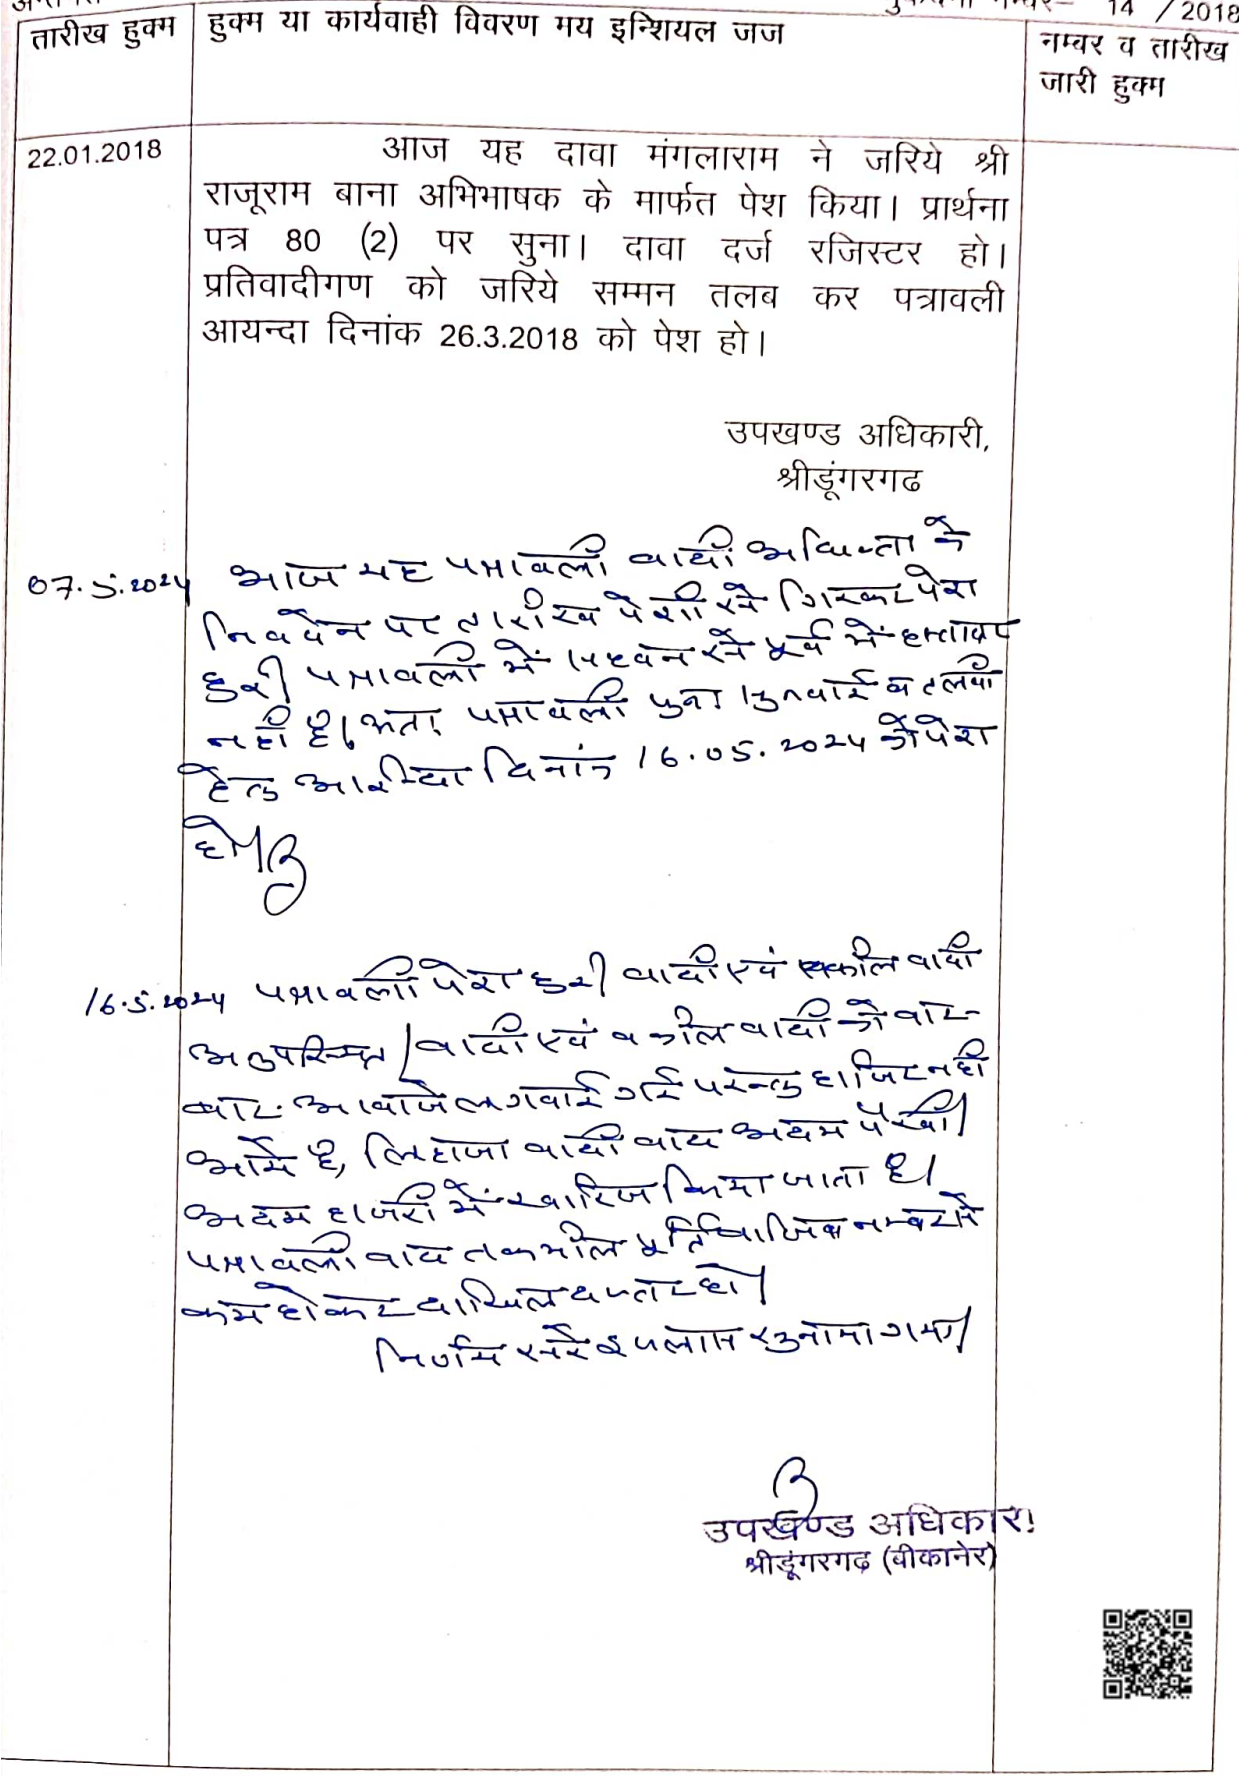 14 / 2018
तारीख हुक्म
हुक्म या कार्यवाही विवरण मय इन्शियल जज
नम्बर व तारीख
जारी हुक्म
22.01.2018
आज यह दावा मंगलाराम ने जरिये श्री
राजूराम बाना अभिभाषक के मार्फत पेश किया। प्रार्थना
पत्र 80 (2) पर सुना। दावा दर्ज रजिस्टर हो।
प्रतिवादीगण को जरिये सम्मन तलब कर पत्रावली
आयन्दा दिनांक 26.3.2018 को पेश हो।
उपखण्ड अधिकारी,
श्रीडूंगरगढ
07.5.2024 आज यह पत्रावली वादी के
पर तारीख पेशी से पेश
हुयी पत्रावली में से पूर्व में
नही है। अतः पत्रावली व तलबी
हेतु दिनांक 16.05.2024 को पेश
हो।
16.5.2024 पत्रावली पेश हुयी वादी एवं वकील वादी
अनुपस्थित। वादी एवं वकील वादी को बार-
बार आवाजे लगवाई गई परन्तु हाजिर नही
आये है, लिहाजा वादी वाद अदम पैरवी
अदम हाजरी में खारिज किया जाता है।
पत्रावली वाद तकमील पूर्ति नम्बर से
कम होकर दाखिल दफ्तर हो।
निर्णय सरे इजलास सुनाया गया।
उपखण्ड अधिकारी
श्रीडूंगरगढ़ (बीकानेर)